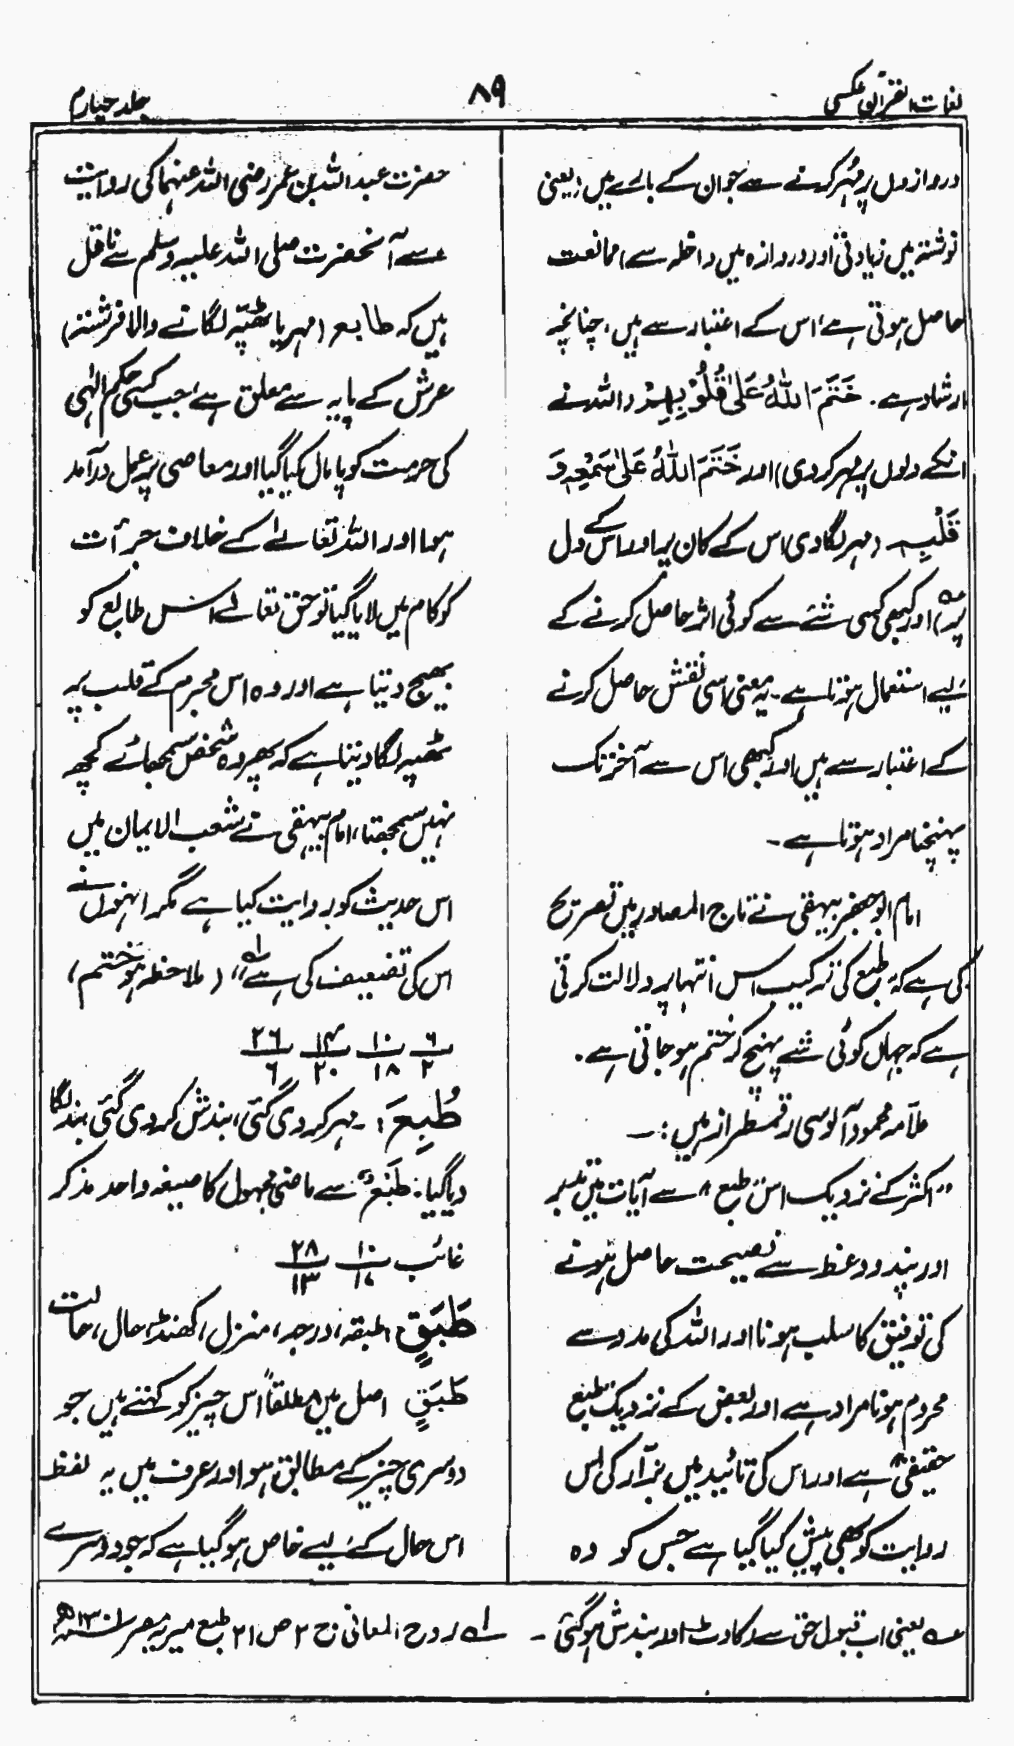 لغات القرآن عکسی
۸۹
جلد چہارم
دروازوں پر مُہر کرنے سے جو ان کے بارے میں؛ یعنی
نوشتہ میں زیادتی اور دروازہ میں داخلہ سے ممانعت
حاصل ہوتی ہے، اس کے اعتبار سے ہیں، چنانچہ
ارشاد ہے۔ خَتَمَ اللّٰهُ عَلٰی قُلُوْبِهِمْ (اللہ نے
انکے دلوں پر مہر کردی) اور خَتَمَ اللّٰهُ عَلٰی سَمْعِهٖ وَ
قَلْبِهٖ (مہر لگادی اس کے کان پر اور اس کے دل
پر) اور کبھی کسی شئے سے کوئی اثر حاصل کرنے کے
لیے استعمال ہوتا ہے۔ یہ معنی اسی نقش حاصل کرنے
کے اعتبار سے ہیں اور کبھی اس سے آخر تک
پہنچنا مراد ہوتا ہے۔
امام ابوجعفر بیہقی نے تاج المصادر میں تصریح
کی ہے کہ طبع کی ترکیب اس انتہا پر دلالت کرتی
ہے کہ جہاں کوئی شئے پہنچ کر ختم ہو جاتی ہے۔
علامہ محمود آلوسی رقمطراز ہیں:۔
"اکثر کے نزدیک اس "طبع" سے آیات میں تدبر
اور پند و وعظ سے نصیحت حاصل ہونے
کی توفیق کا سلب ہونا اور اللہ کی مدد سے
محروم ہونا مراد ہے اور بعض کے نزدیک طبع
حقیقی ہے اور اس کی تائید میں بزار کی اس
روایت کو بھی پیش کیا گیا ہے جس کو وہ
حضرت عبداللہ بن عمر رضی اللہ عنہما کی روایت
سے آنحضرت صلی اللہ علیہ وسلم سے ناقل
ہیں کہ طابع (مہر یا ٹھپّہ لگانے والا فرشتہ)
عرش کے پایہ سے معلق ہے، جب کسی حکم الٰہی
کی حرمت کو پامال کیا گیا اور معاصی پر عمل درآمد
ہوا اور اللہ تعالےٰ کے خلاف جرأت
کو کام میں لایا گیا تو حق تعالےٰ اس طابع کو
بھیج دیتا ہے اور وہ اس مجرم کے قلب پر
ٹھپہ لگا دیتا ہے کہ پھر وہ شخص سمجھائے کچھ
نہیں سمجھتا، امام بیہقی نے شعب الایمان میں
اس حدیث کو روایت کیا ہے مگر انہوں نے
اس کی تضعیف کی ہے"؂۱ (ملاحظہ ہو ختم)
۶/۲ ۱۰/۱۸ ۱۴/۲۰ ۲۶/۶
طُبِعَ: مہر کر دی گئی، بندش کر دی گئی، بند لگا
دیا گیا: طَبْعٌ سے ماضی مجہول کا صیغہ واحد مذکر
غائب ۱۰/۱۷ ۲۸/۱۳
طَبَقٍ طبقہ، درجہ، منزل، کھنڈ، حال، حالت
طَبَقٍ اصل میں مطلقاً اس چیز کو کہتے ہیں جو
دوسری چیز کے مطابق ہو اور عرف میں یہ لفظ
اس حال کے لیے خاص ہو گیا ہے کہ جو دوسرے
عہ یعنی اب قبول حق سے رکاوٹ اور بندش ہو گئی۔
؂۱ روح المعانی ج ۲ ص ۲۱ طبع میریہ مصر ۱۳۰۱ھ